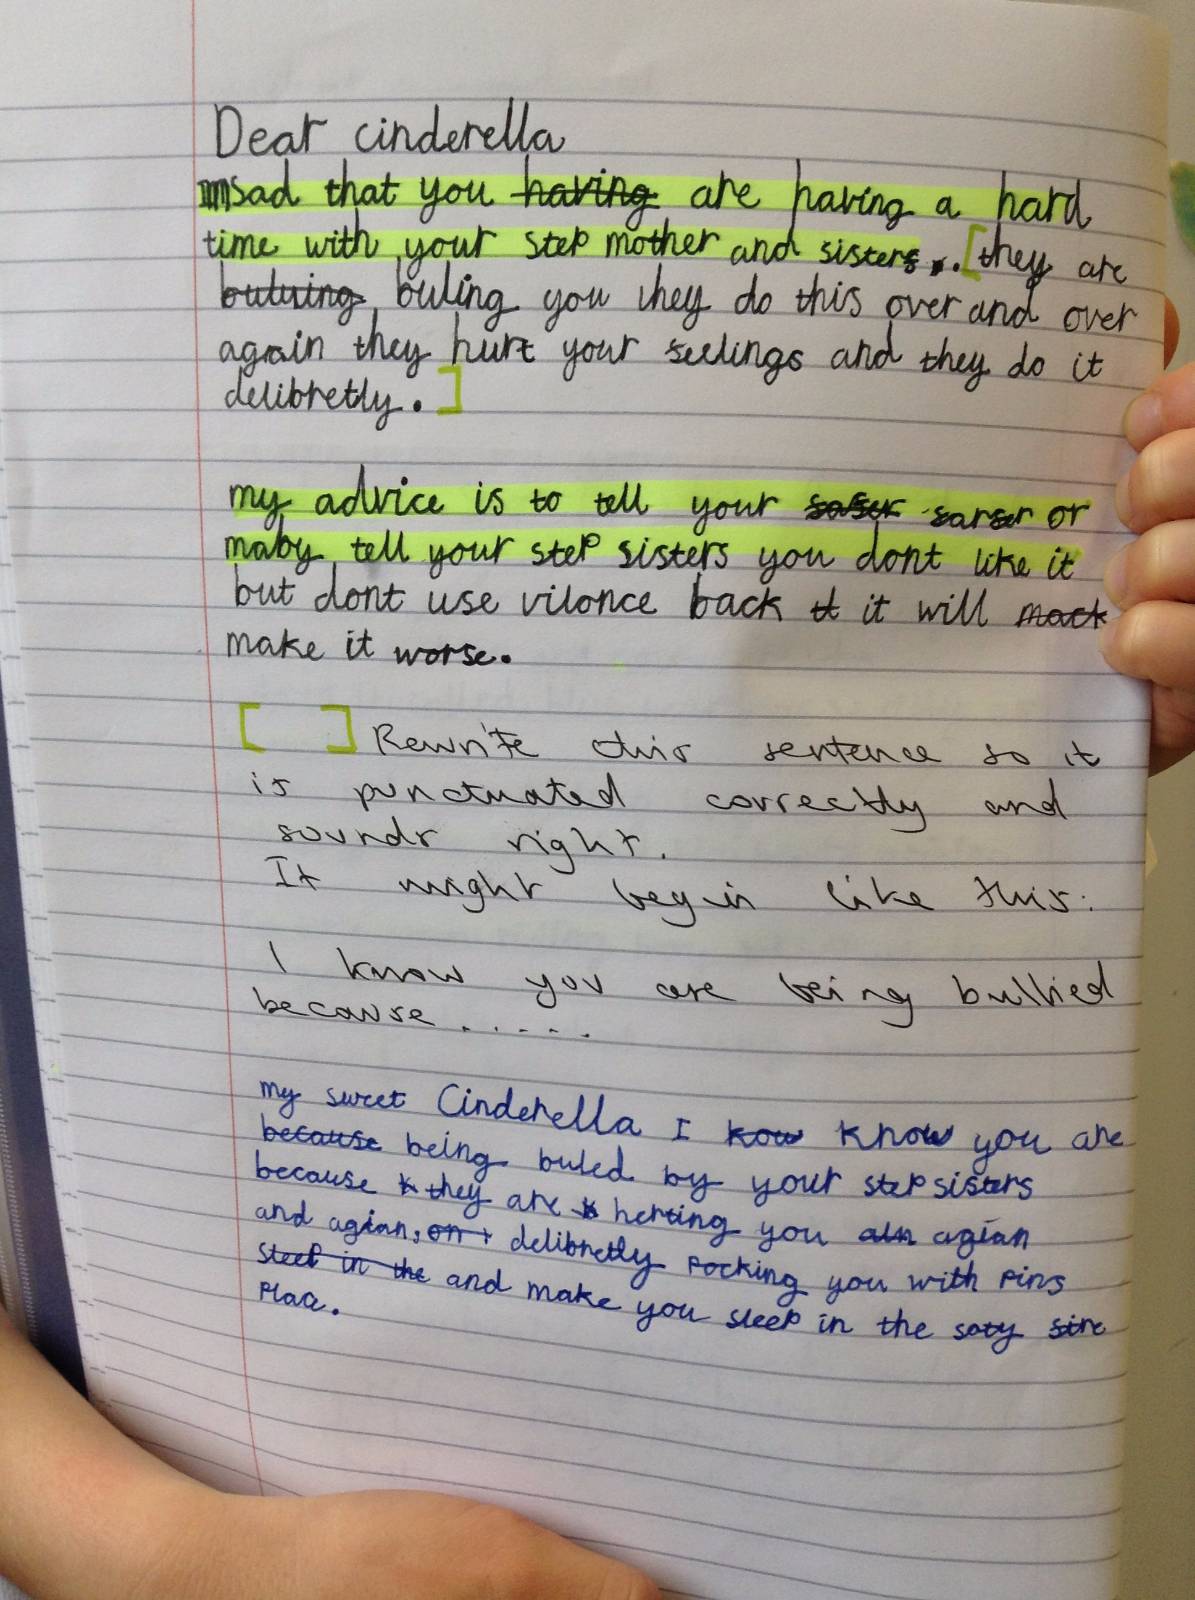 Dear cinderella
sad that you having are having a hard
time with your step mother and sisters.. [they are
buling you they do this over and over
again they hurt your feelings and they do it
delibretly.]
my advice is to tell your or
maby tell your step sisters you dont like it
but dont use vilonce back it will
make it worse.
[ ] Rewrite this sentence so it
is punctuated correctly and
sounds right.
It might begin like this:
I know you are being bullied
because ......
my sweet Cinderella I kow know you are
because being buled by your step sisters
because they are herting you agian
and agian, delibretly pocking you with pins
sleep in the and make you sleep in the soty fire
place.